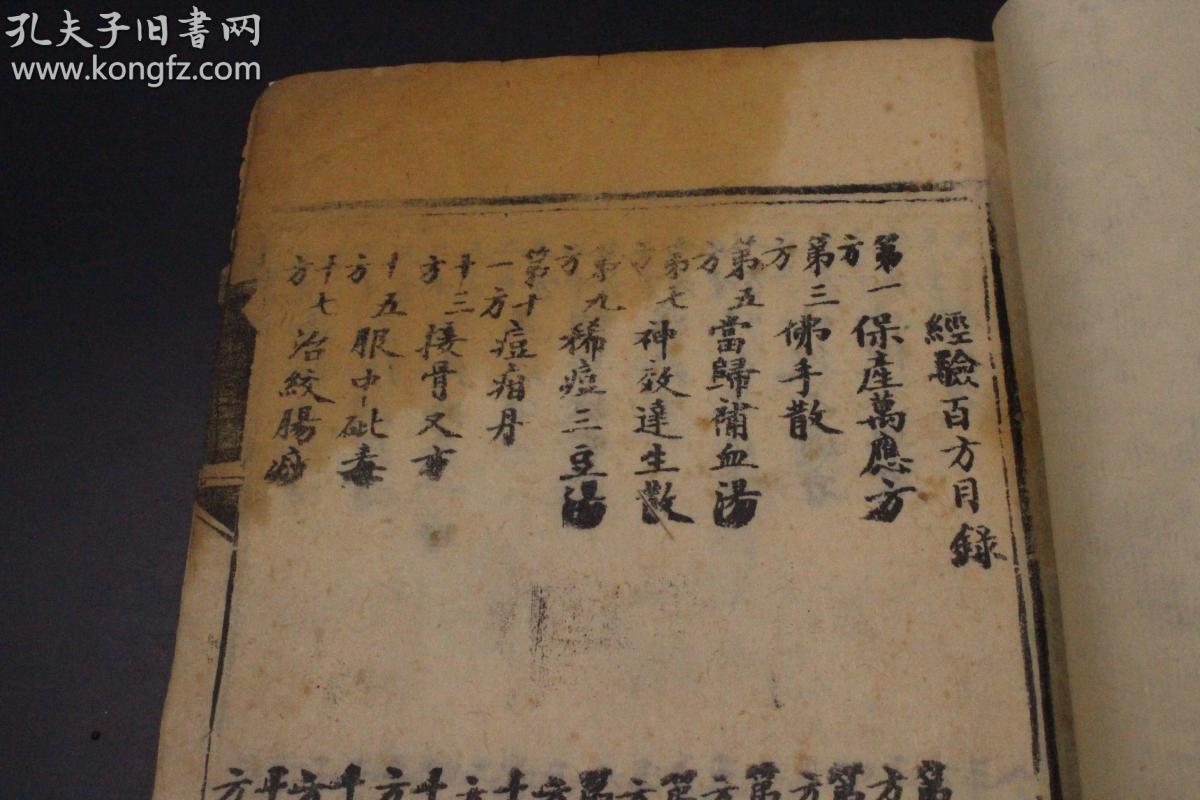 孔夫子旧书网
www.kongfz.com
經驗百方目録
第一方 保產萬應方
第三方 佛手散
第五方 當歸補血湯
第七方 神效達生散
第九方 稀痘三豆湯
第十一方 痘疳丹
十三方 接骨又方
十五方 服中砒毒
十七方 治絞腸痧
第 方
第 方
第 方
第 方
第 方
十 方
十 方
十 方
十 方